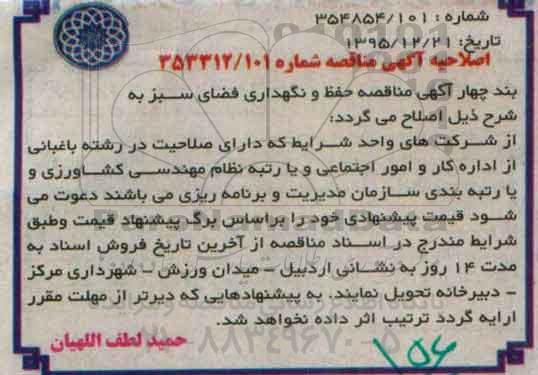 شماره : ۳۵۴۸۵۴/۱۰۱
تاریخ: ۱۳۹۵/۱۲/۲۱
اصلاحیه آگهی مناقصه شماره ۳۵۳۳۱۲/۱۰۱
بند چهار آگهی مناقصه حفظ و نگهداری فضای سبز به
شرح ذیل اصلاح می گردد:
از شرکت های واحد شرایط که دارای صلاحیت در رشته باغبانی
از اداره کار و امور اجتماعی و یا رتبه نظام مهندسی کشاورزی و
یا رتبه بندی سازمان مدیریت و برنامه ریزی می باشند دعوت می
شود قیمت پیشنهادی خود را براساس برگ پیشنهاد قیمت وطبق
شرایط مندرج در اسناد مناقصه از آخرین تاریخ فروش اسناد به
مدت ۱۴ روز به نشانی اردبیل - میدان ورزش - شهرداری مرکز
- دبیرخانه تحویل نمایند. به پیشنهادهایی که دیرتر از مهلت مقرر
ارایه گردد ترتیب اثر داده نخواهد شد.
حمید لطف اللهیان
۱۵۶
۰۲۱-۸۸۳۴۹۶۷۰-۵